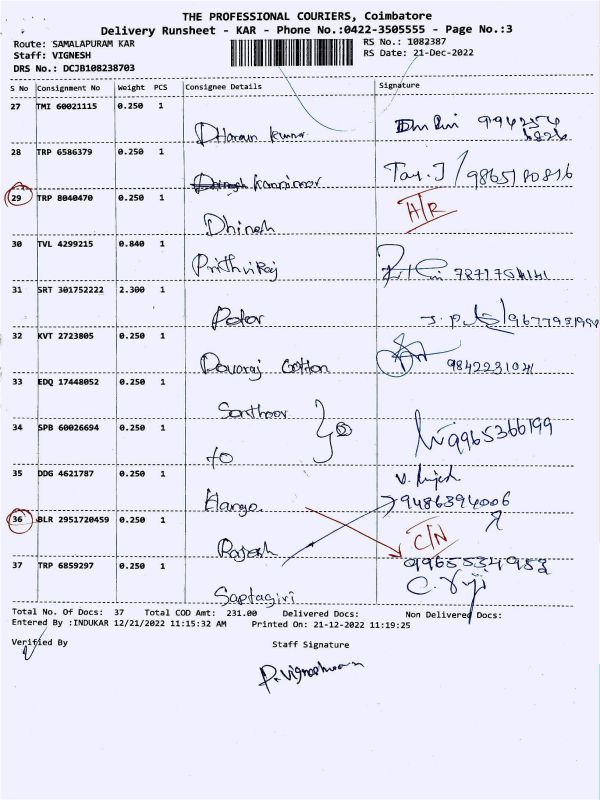 THE PROFESSIONAL COURIERS, Coimbatore
Delivery Runsheet - KAR - Phone No.:0422-3505555 - Page No.:3
Route: SAMALAPURAM KAR
RS No.: 1082387
Staff: VIGNESH
RS Date: 21-Dec-2022
DRS No.: DCJB108238703
S No Consignment No Weight PCS Consignee Details Signature
27 TMI 60021115 0.250 1
28 TRP 6586379 0.250 1
Tay.J / 9865180816
29 TRP 8040470 0.250 1
Dhinesh
30 TVL 4299215 0.840 1
Prithviraj
31 SRT 301752222 2.300 1
32 KVT 2723805 0.250 1
9842231041
33 EDQ 17448052 0.250 1
34 SPB 60026694 0.250 1
to
9965366199
35 DDG 4621787 0.250 1
9486394006
36 BLR 2951720459 0.250 1
Rajesh
C/N
37 TRP 6859297 0.250 1
Saptagiri
Total No. Of Docs: 37 Total COD Amt: 231.00 Delivered Docs: Non Delivered Docs:
Entered By :INDUKAR 12/21/2022 11:15:32 AM Printed On: 21-12-2022 11:19:25
Verified By Staff Signature
P. Vigneshwaran